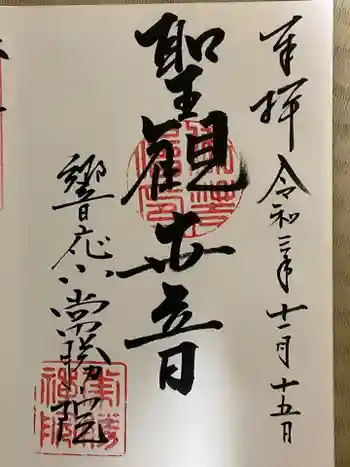 奉拝
令和三年十一月十五日
聖観世音
響應山常勝院